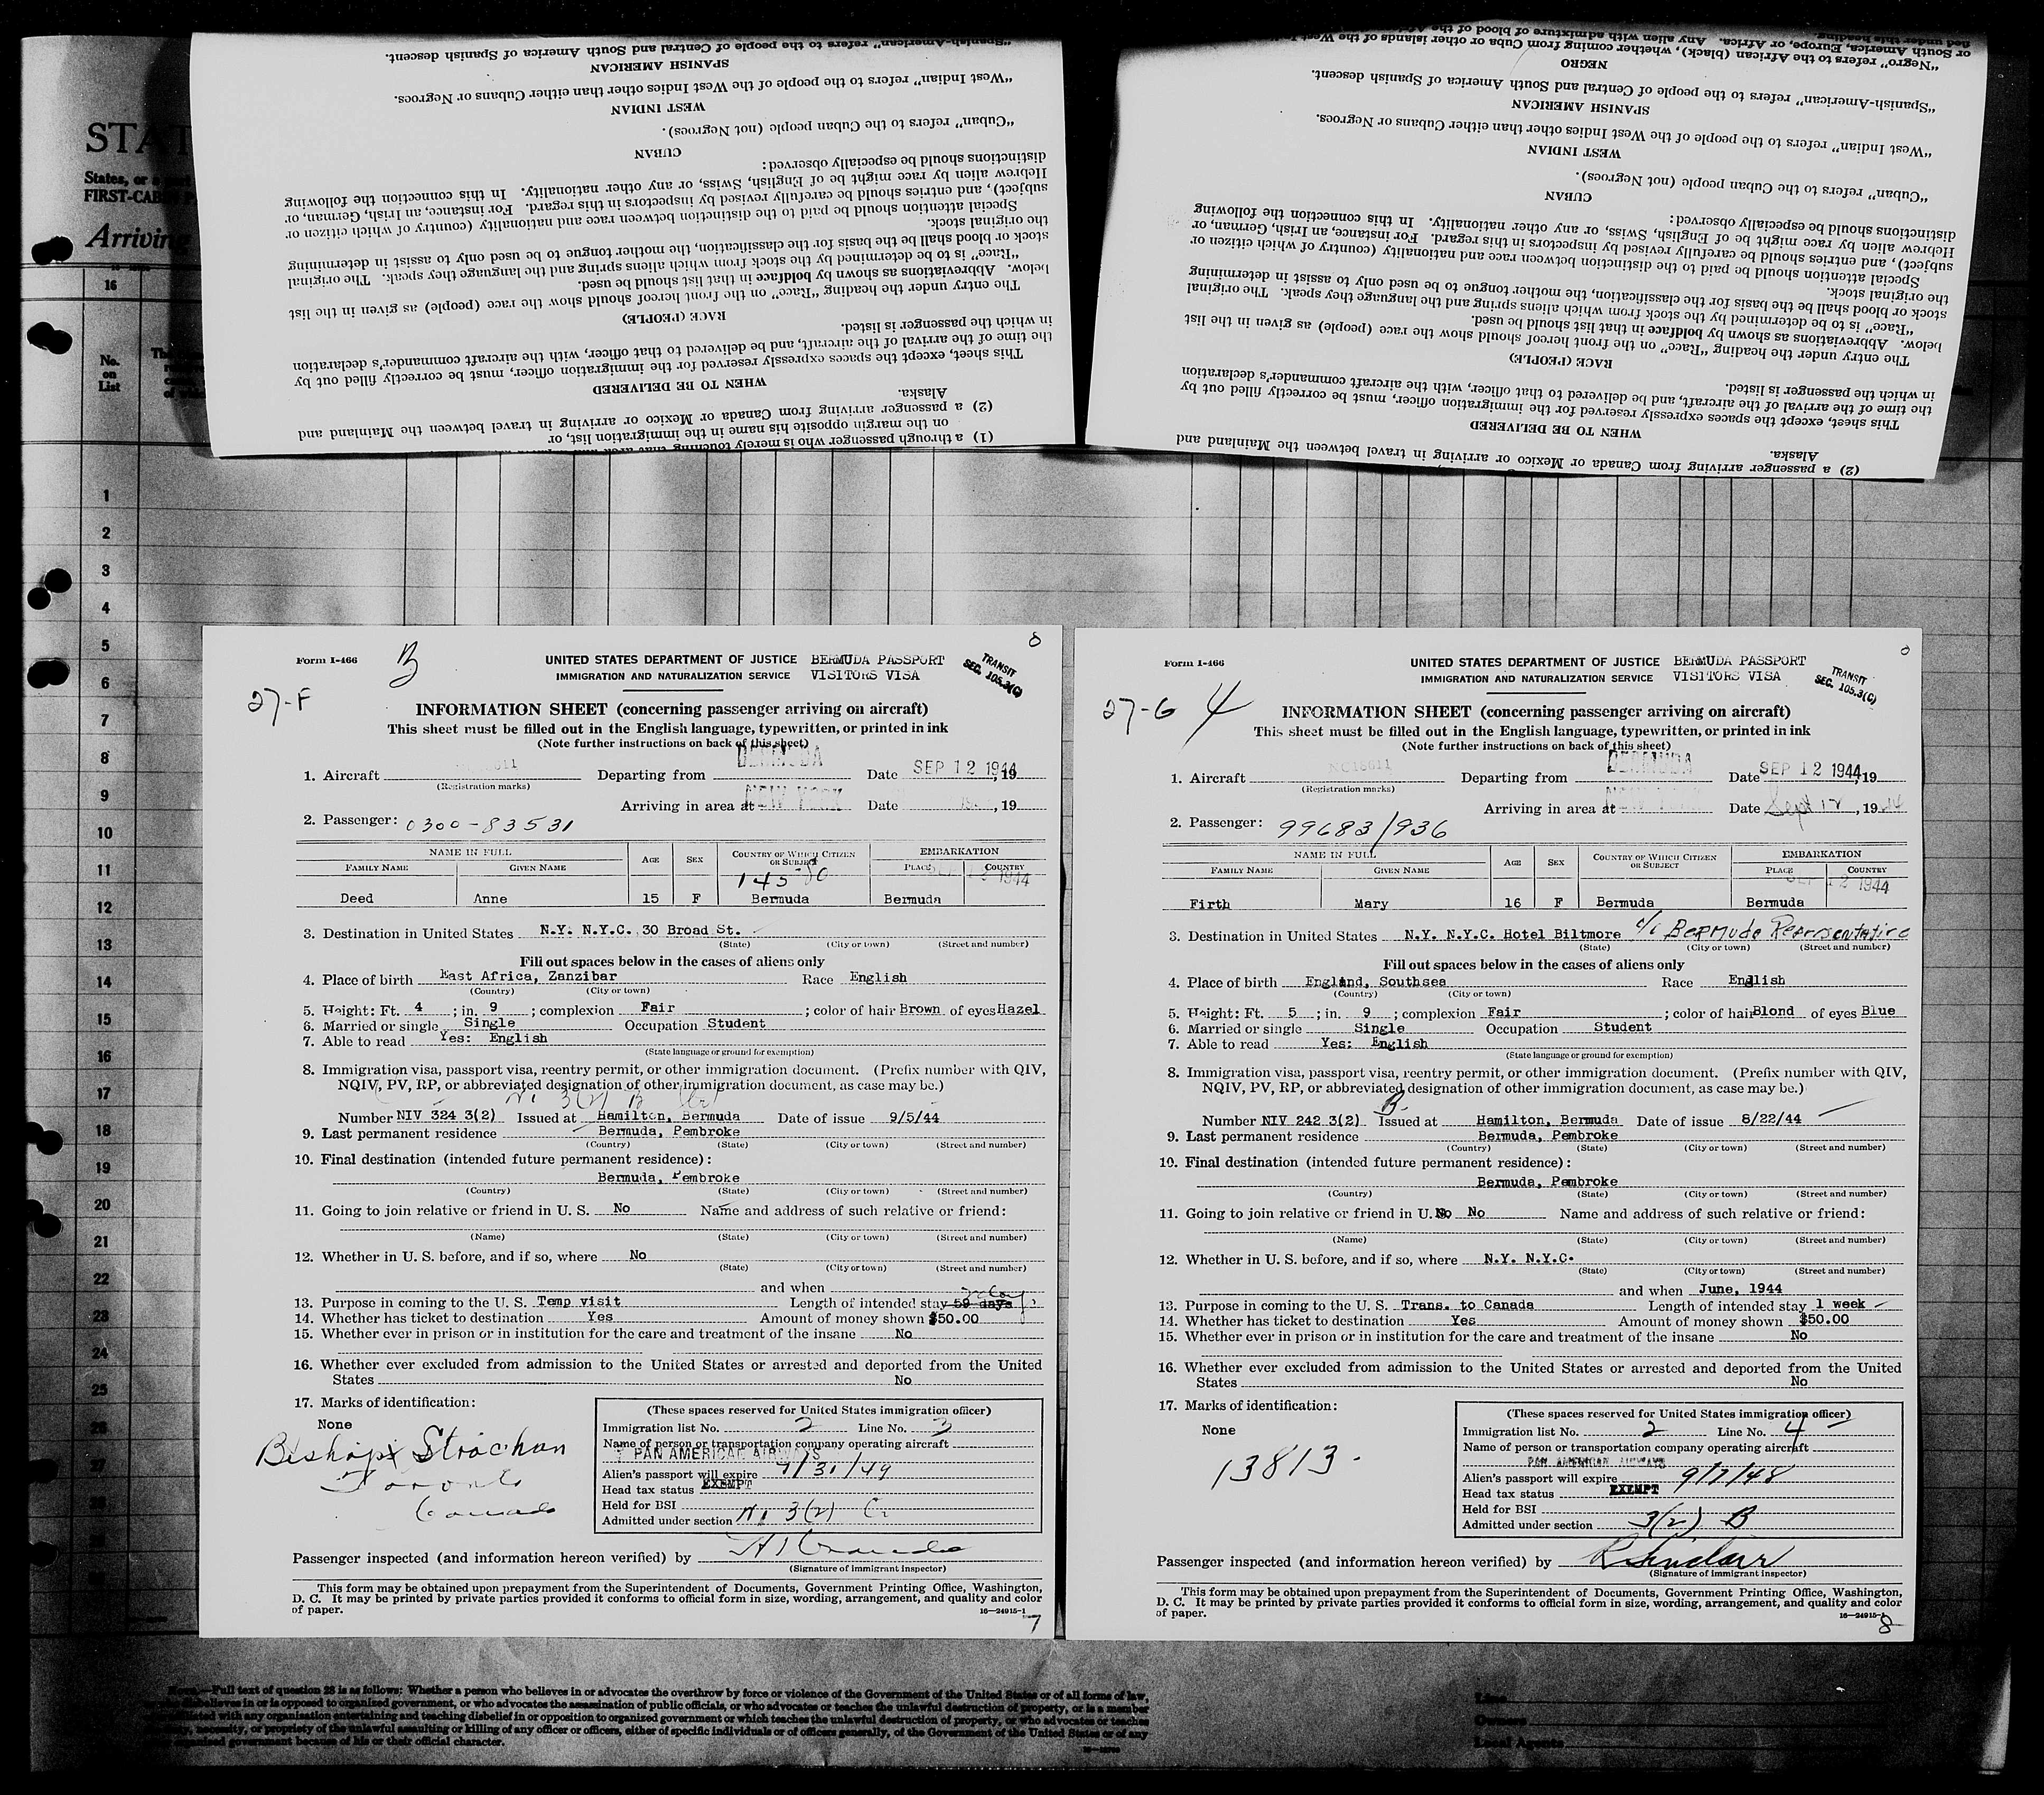 STAT
States, or a
FIRST-CABIN P
Arriving
16
No.
on
List
1
2
3
4
5
6
7
8
9
10
11
12
13
14
15
16
17
18
19
20
21
22
23
24
25
26
27
"Spanish-American" refers to the people of Central and South America of Spanish descent.
SPANISH AMERICAN
"West Indian" refers to the people of the West Indies other than either Cubans or Negroes.
WEST INDIAN
"Cuban" refers to the Cuban people (not Negroes).
CUBAN
distinctions should be especially observed:
Hebrew alien by race might be of English, Swiss, or any other nationality. In this connection the following
subject), and entries should be carefully revised by inspectors in this regard. For instance, an Irish, German, or
Special attention should be paid to the distinction between race and nationality (country of which citizen or
the original stock.
stock or blood shall be the basis for the classification, the mother tongue to be used only to assist in determining
"Race" is to be determined by the stock from which aliens spring and the language they speak. The original
below. Abbreviations as shown by boldface in that list should be used.
The entry under the heading "Race" on the front hereof should show the race (people) as given in the list
RACE (PEOPLE)
in which the passenger is listed.
the time of the arrival of the aircraft, and be delivered to that officer, with the aircraft commander's declaration
This sheet, except the spaces expressly reserved for the immigration officer, must be correctly filled out by
WHEN TO BE DELIVERED
Alaska.
(2) a passenger arriving from Canada or Mexico or arriving in travel between the Mainland and
on the margin opposite his name in the immigration list, or
(1) a through passenger who is merely touching that area
fied under this heading.
or South America, Europe, or Africa. Any alien with admixture of blood of the
"Negro" refers to the African (black), whether coming from Cuba or other islands of the West
NEGRO
"Spanish-American" refers to the people of Central and South America of Spanish descent.
SPANISH AMERICAN
"West Indian" refers to the people of the West Indies other than either Cubans or Negroes.
WEST INDIAN
"Cuban" refers to the Cuban people (not Negroes).
CUBAN
distinctions should be especially observed:
Hebrew alien by race might be of English, Swiss, or any other nationality. In this connection the following
subject), and entries should be carefully revised by inspectors in this regard. For instance, an Irish, German, or
Special attention should be paid to the distinction between race and nationality (country of which citizen or
the original stock.
stock or blood shall be the basis for the classification, the mother tongue to be used only to assist in determining
"Race" is to be determined by the stock from which aliens spring and the language they speak. The original
below. Abbreviations as shown by boldface in that list should be used.
The entry under the heading "Race" on the front hereof should show the race (people) as given in the list
RACE (PEOPLE)
in which the passenger is listed.
the time of the arrival of the aircraft, and be delivered to that officer, with the aircraft commander's declaration
This sheet, except the spaces expressly reserved for the immigration officer, must be correctly filled out by
WHEN TO BE DELIVERED
Alaska.
(2) a passenger arriving from Canada or Mexico or arriving in travel between the Mainland and
8
Form I-466 B UNITED STATES DEPARTMENT OF JUSTICE BERMUDA PASSPORT
IMMIGRATION AND NATURALIZATION SERVICE VISITORS VISA
TRANSIT
SEC. 105.3(C)
27-F
INFORMATION SHEET (concerning passenger arriving on aircraft)
This sheet must be filled out in the English language, typewritten, or printed in ink
(Note further instructions on back of this sheet)
1. Aircraft Departing from BERMUDA Date SEP 12 1944, 19
(Registration marks)
Arriving in area at NEW YORK Date , 19
2. Passenger: 0300-83531
NAME IN FULL AGE SEX COUNTRY OF WHICH CITIZEN OR SUBJECT EMBARKATION
FAMILY NAME GIVEN NAME PLACE COUNTRY
1944
Deed Anne 15 F Bermuda Bermuda
3. Destination in United States N.Y. N.Y.C. 30 Broad St.
(State) (City or town) (Street and number)
Fill out spaces below in the cases of aliens only
4. Place of birth East Africa, Zanzibar Race English
(Country) (City or town)
5. Height: Ft. 4 ; in. 9 ; complexion Fair ; color of hair Brown of eyes Hazel
6. Married or single Single Occupation Student
7. Able to read Yes: English
(State language or ground for exemption)
8. Immigration visa, passport visa, reentry permit, or other immigration document. (Prefix number with QIV,
NQIV, PV, RP, or abbreviated designation of other immigration document, as case may be.)
Number NIV 324 3(2) Issued at Hamilton, Bermuda Date of issue 9/5/44
9. Last permanent residence Bermuda, Pembroke
(Country) (State) (City or town) (Street and number)
10. Final destination (intended future permanent residence):
Bermuda, Pembroke
(Country) (State) (City or town) (Street and number)
11. Going to join relative or friend in U. S. No Name and address of such relative or friend:
(Name) (State) (City or town) (Street and number)
12. Whether in U. S. before, and if so, where No
(State) (City or town) (Street and number)
and when
13. Purpose in coming to the U. S. Temp visit Length of intended stay 59 days
14. Whether has ticket to destination Yes Amount of money shown $50.00
15. Whether ever in prison or in institution for the care and treatment of the insane No
16. Whether ever excluded from admission to the United States or arrested and deported from the United
States No
17. Marks of identification:
None
Bishop Strachan
Toronto
Canada
(These spaces reserved for United States immigration officer)
Immigration list No. 2 Line No. 3
Name of person or transportation company operating aircraft
PAN AMERICAN AIRWAYS
Alien's passport will expire 7/31/49
Head tax status EXEMPT
Held for BSI
Admitted under section 3(2)
Passenger inspected (and information hereon verified) by
(Signature of immigrant inspector)
This form may be obtained upon prepayment from the Superintendent of Documents, Government Printing Office, Washington,
D. C. It may be printed by private parties provided it conforms to official form in size, wording, arrangement, and quality and color
of paper.
16—24915-1
7
8
Form I-466 UNITED STATES DEPARTMENT OF JUSTICE BERMUDA PASSPORT
IMMIGRATION AND NATURALIZATION SERVICE VISITORS VISA
TRANSIT
SEC. 105.3(C)
27-G 4
INFORMATION SHEET (concerning passenger arriving on aircraft)
This sheet must be filled out in the English language, typewritten, or printed in ink
(Note further instructions on back of this sheet)
1. Aircraft NC18611 Departing from BERMUDA Date SEP 12 1944, 19
(Registration marks)
Arriving in area at NEW YORK Date Sept 12, 1944
2. Passenger: 99683/936
NAME IN FULL AGE SEX COUNTRY OF WHICH CITIZEN OR SUBJECT EMBARKATION
FAMILY NAME GIVEN NAME PLACE COUNTRY
SEP 12 1944
Firth Mary 16 F Bermuda Bermuda
3. Destination in United States N.Y. N.Y.C. Hotel Biltmore c/o Bermuda Representative
(State) (City or town) (Street and number)
Fill out spaces below in the cases of aliens only
4. Place of birth England, Southsea Race English
(Country) (City or town)
5. Height: Ft. 5 ; in. 9 ; complexion Fair ; color of hair Blond of eyes Blue
6. Married or single Single Occupation Student
7. Able to read Yes: English
(State language or ground for exemption)
8. Immigration visa, passport visa, reentry permit, or other immigration document. (Prefix number with QIV,
NQIV, PV, RP, or abbreviated designation of other immigration document, as case may be.)
B
Number NIV 242 3(2) Issued at Hamilton, Bermuda Date of issue 8/22/44
9. Last permanent residence Bermuda, Pembroke
(Country) (State) (City or town) (Street and number)
10. Final destination (intended future permanent residence):
Bermuda, Pembroke
(Country) (State) (City or town) (Street and number)
11. Going to join relative or friend in U. S. No No Name and address of such relative or friend:
(Name) (State) (City or town) (Street and number)
12. Whether in U. S. before, and if so, where N.Y. N.Y.C.
(State) (City or town) (Street and number)
and when June, 1944
13. Purpose in coming to the U. S. Trans. to Canada Length of intended stay 1 week
14. Whether has ticket to destination Yes Amount of money shown $50.00
15. Whether ever in prison or in institution for the care and treatment of the insane No
16. Whether ever excluded from admission to the United States or arrested and deported from the United
States No
17. Marks of identification:
None
13813
(These spaces reserved for United States immigration officer)
Immigration list No. 2 Line No. 4
Name of person or transportation company operating aircraft
PAN AMERICAN AIRWAYS
Alien's passport will expire 9/7/48
Head tax status EXEMPT
Held for BSI
Admitted under section 3(2) B
Passenger inspected (and information hereon verified) by R Sinclair
(Signature of immigrant inspector)
This form may be obtained upon prepayment from the Superintendent of Documents, Government Printing Office, Washington,
D. C. It may be printed by private parties provided it conforms to official form in size, wording, arrangement, and quality and color
of paper.
16—24915-1
8
NOTE.—Full text of question 28 is as follows: Whether a person who believes in or advocates the overthrow by force or violence of the Government of the United States or of all forms of law,
disbelieves in or is opposed to organized government, or who advocates the assassination of public officials, or who advocates or teaches the unlawful destruction of property, or is a member
affiliated with any organization entertaining and teaching disbelief in or opposition to organized government or which teaches the unlawful destruction of property, or who advocates or teaches
necessity, or propriety of the unlawful assaulting or killing of any officer or officers, either of specific individuals or of officers generally, of the Government of the United States or of any
organized government because of his or their official character.
Line
Owners
Local Agents